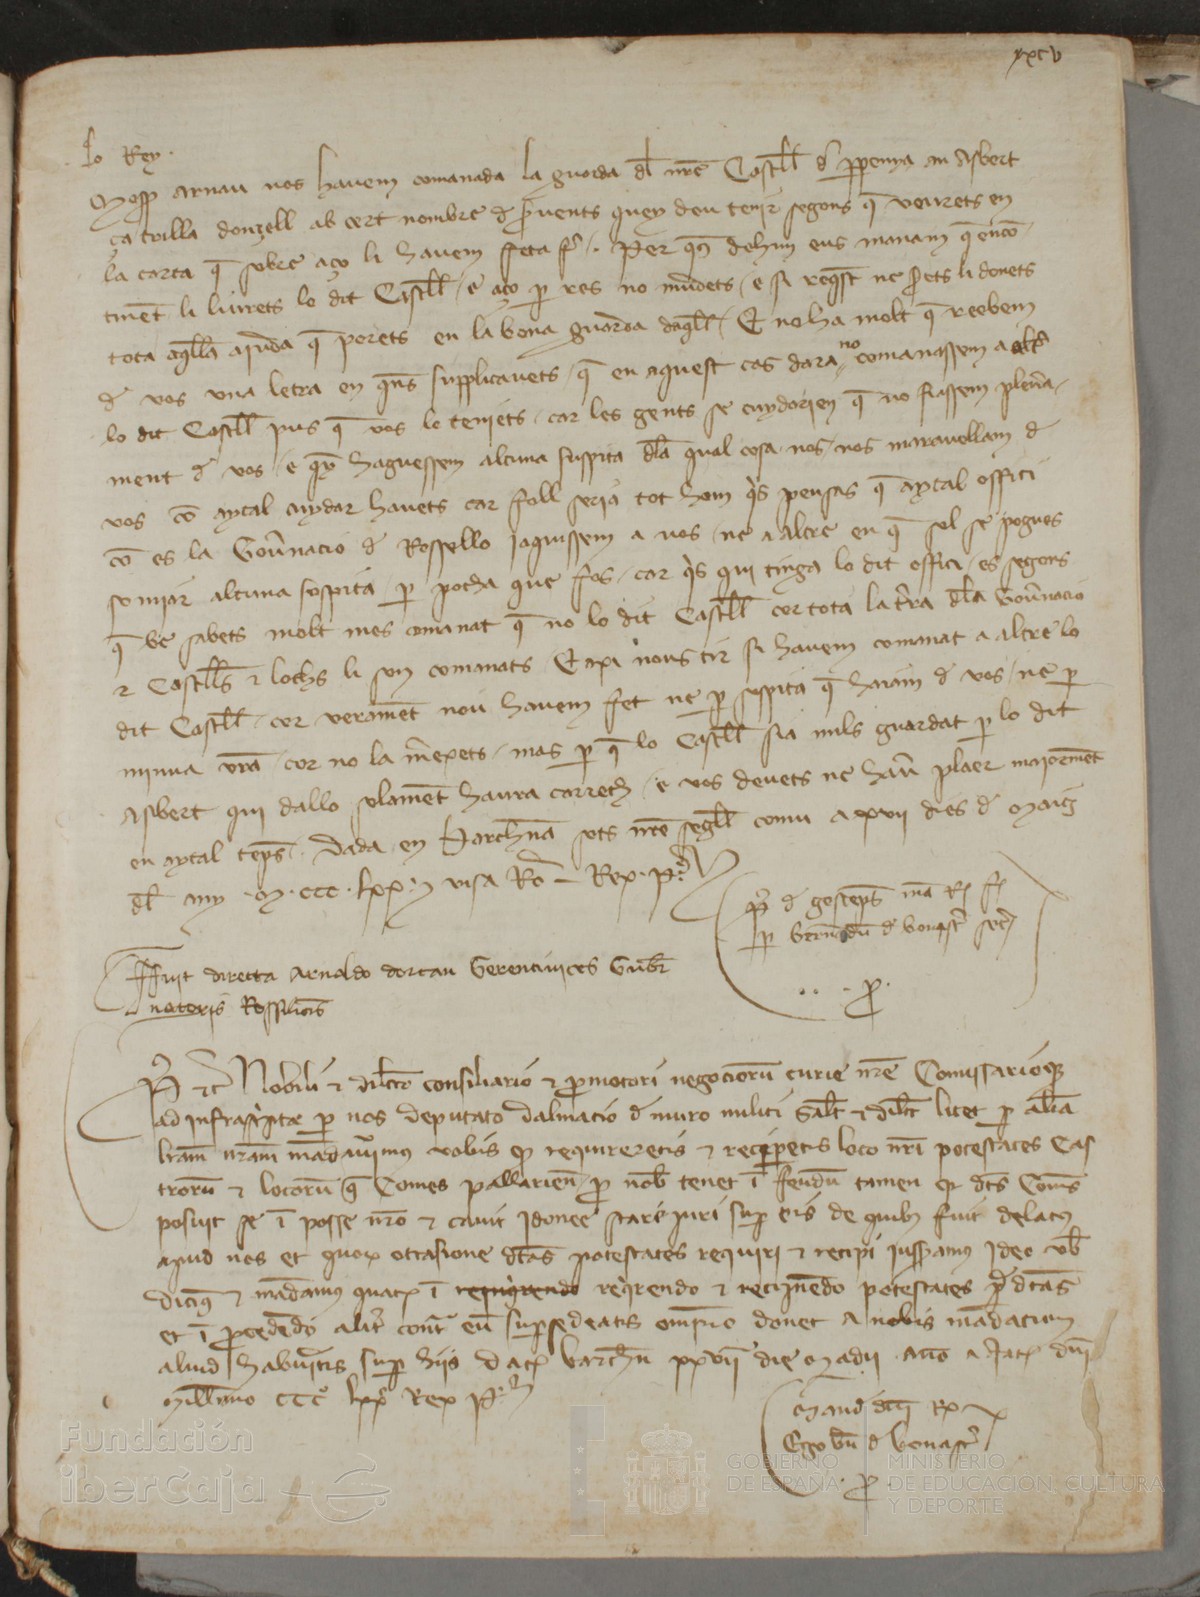 xxcv
Lo Rey.
Mossen Arnau nos havem comanada la guarda dl nre Castell d ppenya an Asbert
ça trilla donzell ab cert nombre de seruents quey deu tenir segons q veurets en
la carta q sobre aço li havem feta fer. Per q dehim eus manam q encon
tinet li liurets lo dit Castell e aço p res no mudets e si request ne sots li donets
tota aqlla ajuda q porets en la bona guarda daqll. Et noha molt q reebem
d vos una letra en qns supplicavets q en aquest cas dara no comanassem a altre
lo dit Castell pus q vos lo teniets car les gents se cuydarien q no fiassem plena
ment d vos e q haguessem alcuna suspita dla qual cosa nos nos maravellam d
vos co aytal cuydar havets car foll seria tot hom qis pensas q aytal offici
co es la Gouernacio d Rossello jaquissem a vos ne a altre en q sol se pogues
somiar alcuna sospita p pocha que fos car qls qui tinga lo dit offici es segons
q be sabets molt mes comanat q no lo dit Castell cor tota la tra dla Gouernacio
e Castells e lochs li son comanats Et axi nous tir si havem comanat a altre lo
dit Castell cor verament nou havem fet ne p suspita q haiam d vos ne p
minua vra cor no la merexets mas p q lo Castell sia mils guardat p lo dit
Asbert qui dallo solament haura carrech e vos devets ne haver plaer maiorment
en aytal temps. Dada en Barchna sots nre segell comu a xvii dies d Maig
dl any M CCC lxx visa Ro Rex P
P d gostemps ma R f
p Bernardu d bonast secr
p
Ffuit directa Arnaldo dorcau Gerentivices Gubr
natoris Rossilionis
P etc Nobili et dilecto consiliario et pmotori negociorum curie nre Comissarioq
ad infrascripta p nos deputato dalmacio d muro militi Salt et dilect licet p alia
lram nram mandaverimus vobis q requireretis et reciperetis loco nri potestates Cas
trorum et locorum q Comes pallarien p nob tenet i feudum tamen q dts Coms
posuit se i posse nro et cavit idonee stare juri sup eis de quibus fuit delatus
apud nos et quor occasione dtas potestates requiri et recipi jusseramus Ideo vob
dicimus et mandamus quatenus i requirendo reqrendo et recipiendo potestates pdtas
et i pcedendo aliter cont eum supersedeatis omnino donec a nobis mandatum
aliud habueritis sup hiis dat barchn xxvii die Madii anno a Nat dni
millmo CCC lxx Rex P
Mand dni Rx
Ego bn d bonast
p
Fundación
iberCaja
GOBIERNO
DE ESPAÑA
MINISTERIO
DE EDUCACIÓN, CULTURA
Y DEPORTE